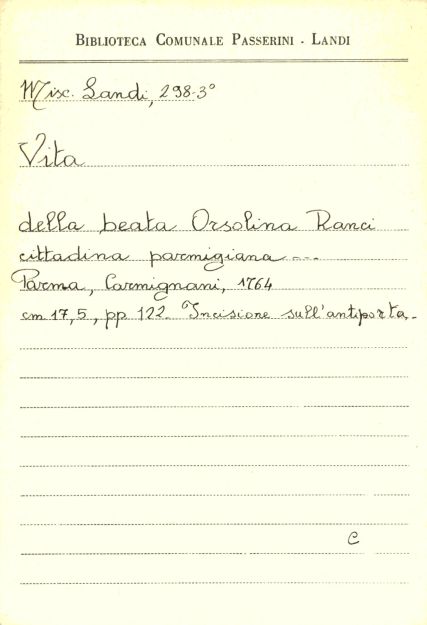 BIBLIOTECA COMUNALE PASSERINI - LANDI
Misc. Landi, 298-3°
Vita
della beata Orsolina Ranci
cittadina parmigiana ...
Parma, Carmignani, 1764
cm 17,5, pp. 122. Incisione sull'antiporta.
C